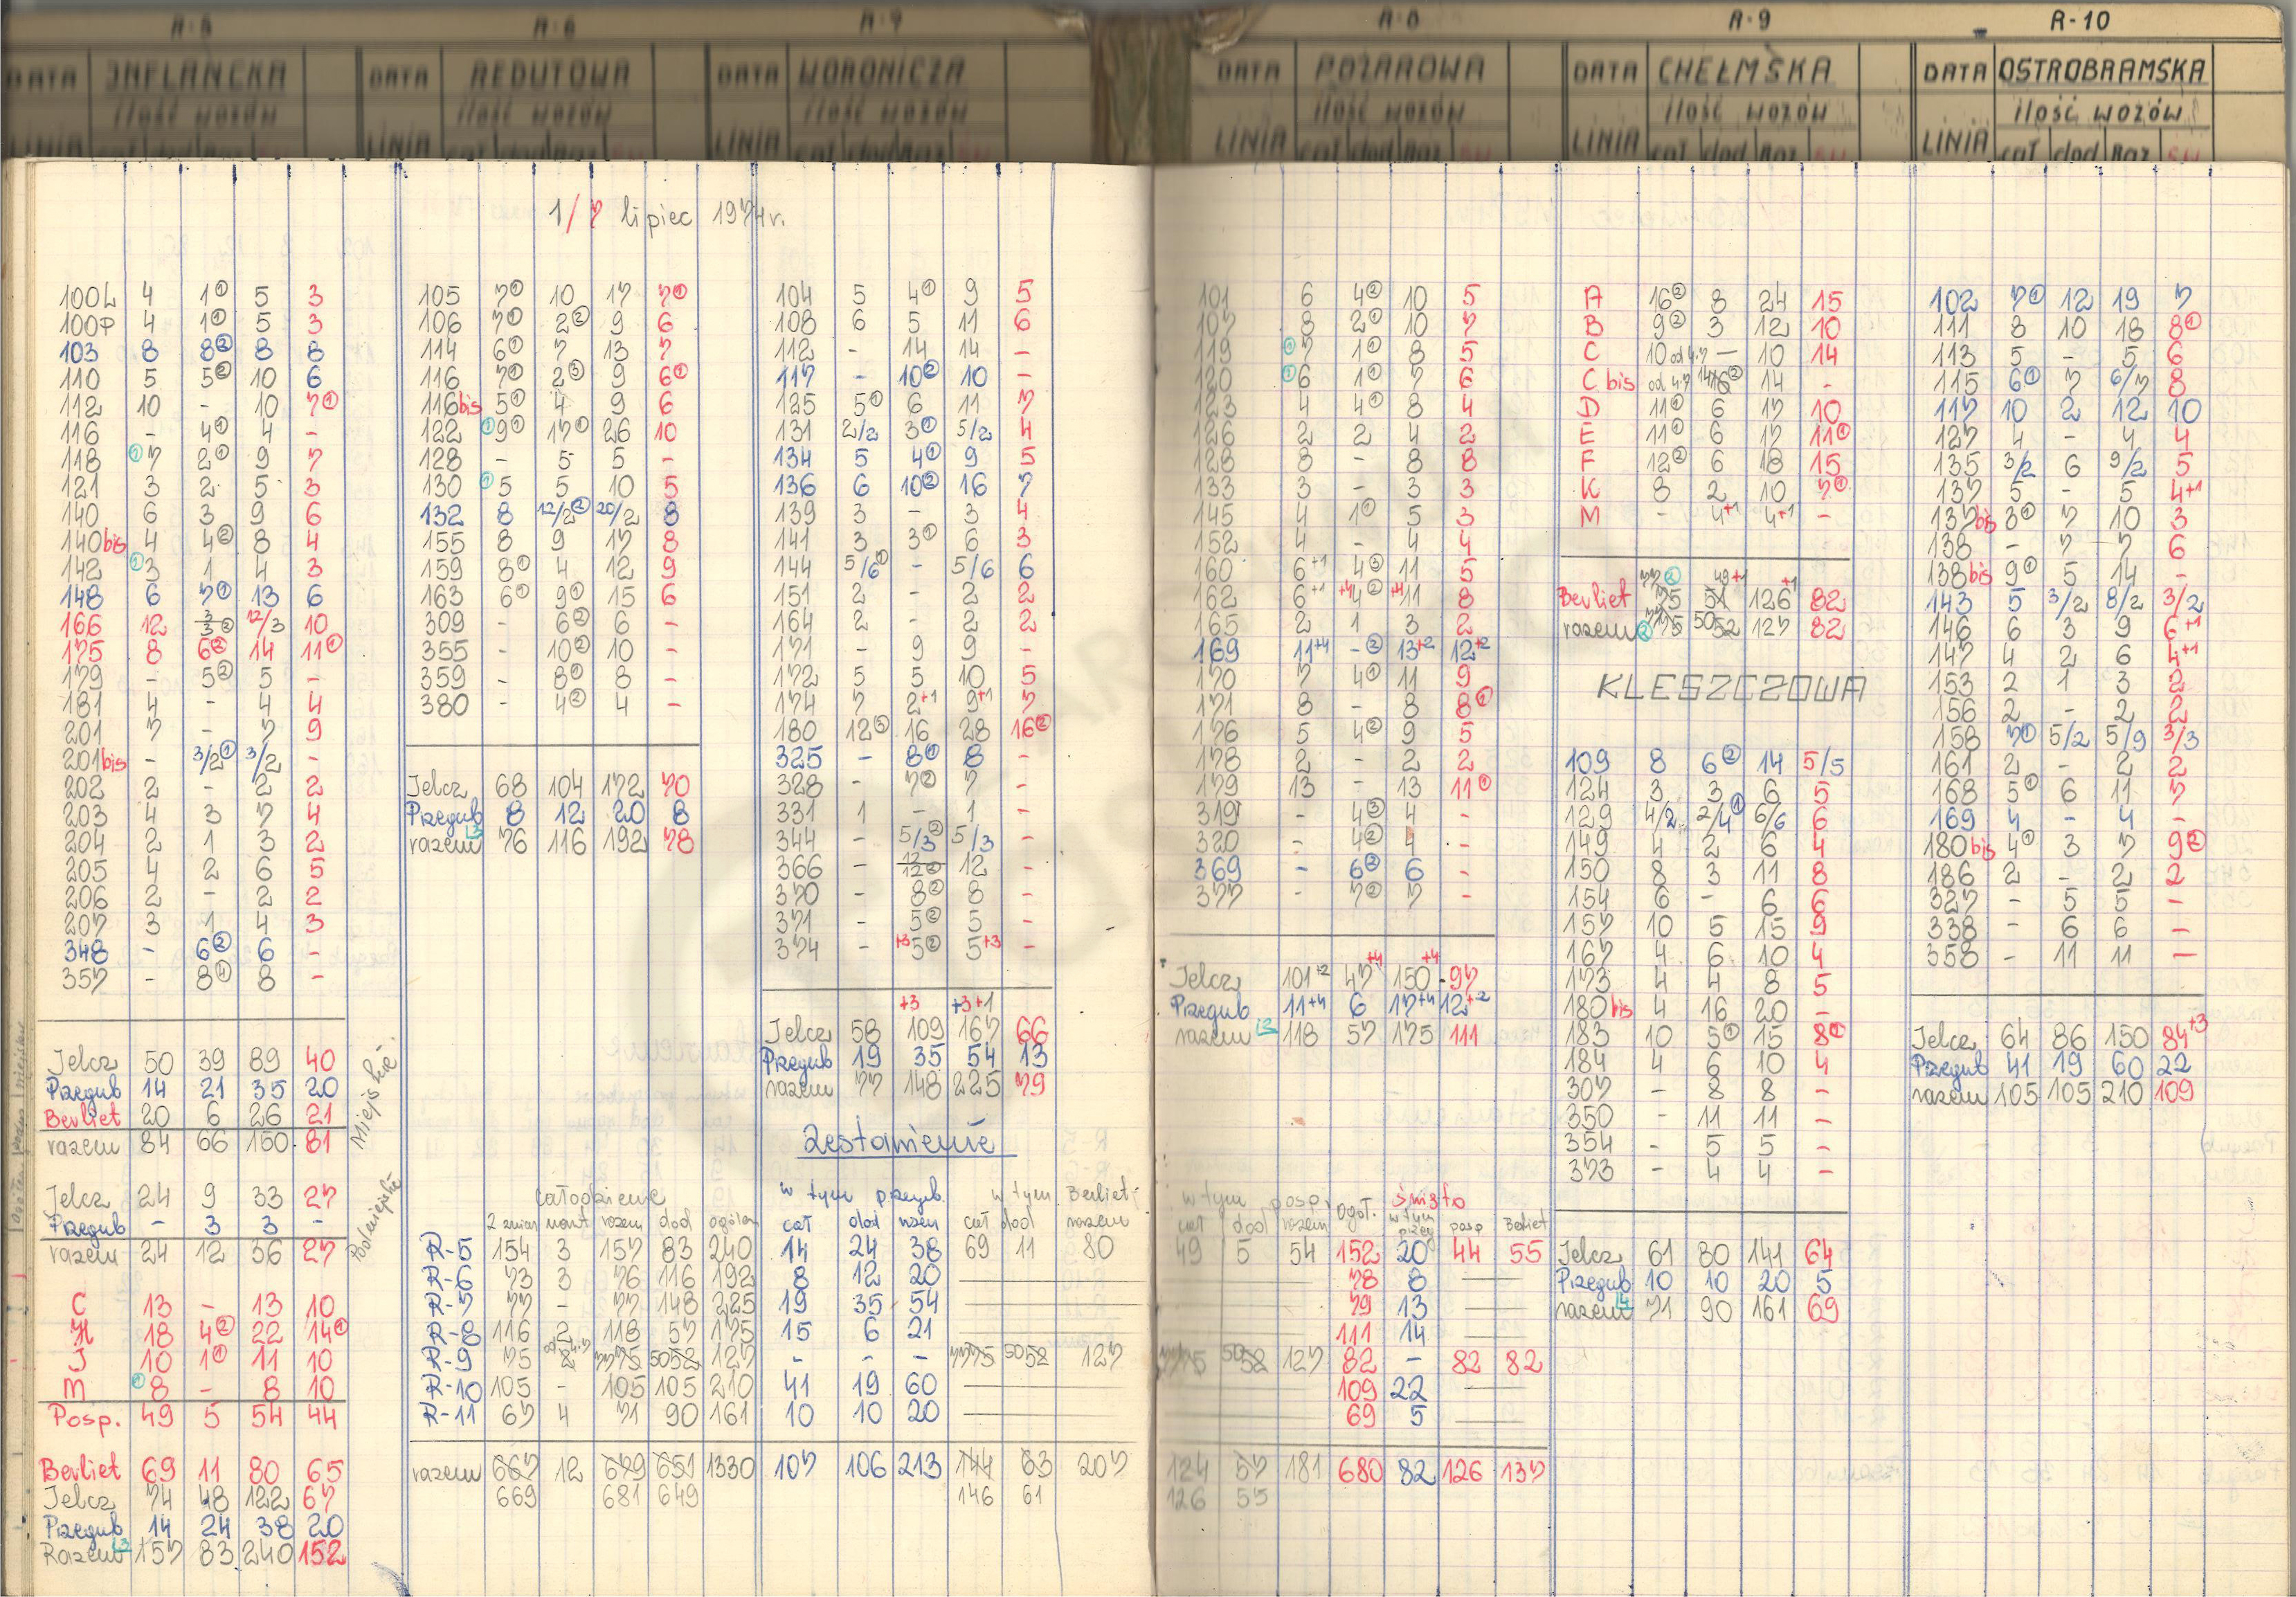 R-5
DATA INFLANCKA
ilość wozów
LINIA
R-6
DATA REDUTOWA
ilość wozów
LINIA
R-7
DATA WORONICZA
ilość wozów
LINIA
R-8
DATA POŻAROWA
ilość wozów
LINIA cał dod Raz
R-9
DATA CHEŁMSKA
ilość wozów
LINIA cał dod Raz
R-10
DATA OSTROBRAMSKA
ilość wozów
LINIA cał dod Raz
1/7 lipiec 1974r.
100L 4 1① 5 3
100P 4 1① 5 3
103 8 8② 8 8
110 5 5② 10 6
112 10 - 10 7①
116 - 4① 4 -
118 ①7 2① 9 7
121 3 2 5 3
140 6 3 9 6
140bis 4 4② 8 4
142 ①3 1 4 3
148 6 7① 13 6
166 12 3/3② 12/3 10
175 8 6② 14 11①
179 - 5② 5 -
181 4 - 4 4
201 7 - 7 9
201bis - 3/2① 3/2 -
202 2 - 2 2
203 4 3 7 4
204 2 1 3 2
205 4 2 6 5
206 2 - 2 2
207 3 1 4 3
348 - 6② 6 -
357 - 8④ 8 -
Jelcz 50 39 89 40
Przegub 14 21 35 20
Berliet 20 6 26 21
razem 84 66 150 81
Miejskie
Jelcz 24 9 33 27
Przegub - 3 3 -
razem 24 12 36 27
Podmiejskie
C 13 - 13 10
H 18 4② 22 14①
J 10 1① 11 10
M ①8 - 8 10
Posp. 49 5 54 44
Berliet 69 11 80 65
Jelcz 74 48 122 67
Przegub 14 24 38 20
Razem 157 83 240 152
105 7① 10 17 7①
106 7① 2② 9 6
114 6① 7 13 7
116 7① 2③ 9 6①
116bis 5① 4 9 6
122 ①9① 17① 26 10
128 - 5 5 -
130 ①5 5 10 5
132 8 12/2② 20/2 8
155 8 9 17 8
159 8① 4 12 9
163 6① 9① 15 6
309 - 6② 6 -
355 - 10② 10 -
359 - 8① 8 -
380 - 4② 4 -
Jelcz 68 104 172 70
Przegub 8 12 20 8
razem 76 116 192 78
104 5 4① 9 5
108 6 5 11 6
112 - 14 14 -
117 - 10② 10 -
125 5① 6 11 7
131 2/2 3① 5/2 4
134 5 4① 9 5
136 6 10② 16 7
139 3 - 3 4
141 3 3① 6 3
144 5/6① - 5/6 6
151 2 - 2 2
164 2 - 2 2
171 - 9 9 -
172 5 5 10 5
174 7 2+1 9+1 7
180 12③ 16 28 16②
325 - 8① 8 -
328 - 7② 7 -
331 1 - 1 -
344 - 5/3② 5/3 -
366 - 12/12② 12 -
370 - 8② 8 -
371 - 5② 5 -
374 - +3 5② 5+3 -
+3 +3+1
Jelcz 58 109 167 66
Przegub 19 35 54 13
razem 77 148 225 79
Zestawienie
całodzienne w tym przegub. w tym Berliet
2 zmian razem dod ogółem cał dod razem cał dod razem
R-5 154 3 157 83 240 14 24 38 69 11 80
R-6 73 3 76 116 192 8 12 20
R-7 77 - 77 148 225 19 35 54
R-8 116 2 118 57 175 15 6 21
R-9 75 2 77 75 50 52 127 - - - 77 75 50 52 127
R-10 105 - 105 105 210 41 19 60
R-11 67 4 71 90 161 10 10 20
razem 667 12 679 651 1330 107 106 213 144 63 207
669 681 649 146 61
101 6 4② 10 5
107 8 2① 10 7
119 ①7 1① 8 5
120 ①6 1① 7 6
123 4 4① 8 4
126 2 2 4 2
128 8 - 8 8
133 3 - 3 3
145 4 1① 5 3
152 4 - 4 4
160 6+1 4③ 11 5
162 6+1 +4 4② +4 11 8
165 2 1 3 2
169 11+4 -② 13+2 12+2
170 7 4① 11 9
171 8 - 8 8①
176 5 4② 9 5
178 2 - 2 2
179 13 - 13 11①
319 - 4③ 4 -
320 - 4② 4 -
369 - 6② 6 -
377 - 7② 7 -
+4 +4
Jelcz 101+2 47 150 97
Przegub 11+4 6 17+4 12+2
razem 118 57 175 111
w tym posp. Ogół. święto
cał dod razem w tym przeg posp Berliet
49 5 54 152 20 44 55
78 8
79 13
111 14
77 75 50 52 127 82 - 82 82
109 22
69 5
124 57 181 680 82 126 137
126 55
A 16② 8 24 15
B 9② 3 12 10
C 10 od 4.7 - 10 14
C bis od 4.7 14 16② 14 -
D 11① 6 17 10
E 11① 6 17 11①
F 12② 6 18 15
K 8 2 10 7①
M - 4+1 4+1 -
77② 49+1 +1
Berliet 75 51 126 82
razem② 77 75 50 52 127 82
KLESZCZOWA
109 8 6② 14 5/5
124 3 3 6 5
129 4/2 2/4① 6/6 6
149 4 2 6 4
150 8 3 11 8
154 6 - 6 6
157 10 5 15 9
167 4 6 10 4
173 4 4 8 5
180bis 4 16 20 -
183 10 5① 15 8①
184 4 6 10 4
307 - 8 8 -
350 - 11 11 -
354 - 5 5 -
373 - 4 4 -
Jelcz 61 80 141 64
Przegub 10 10 20 5
razem 71 90 161 69
102 7① 12 19 7
111 8 10 18 8①
113 5 - 5 6
115 6① 7 6/7 8
117 10 2 12 10
127 4 - 4 4
135 3/2 6 9/2 5
137 5 - 5 4+1
137bis 3① 7 10 3
138 - 7 7 6
138bis 9① 5 14 -
143 5 3/2 8/2 3/2
146 6 3 9 6+1
147 4 2 6 4+1
153 2 1 3 2
156 2 - 2 2
158 7① 5/2 5/9 3/3
161 2 - 2 2
168 5① 6 11 7
169 4 - 4 -
180bis 4① 3 7 9②
186 2 - 2 2
327 - 5 5 -
338 - 6 6 -
358 - 11 11 -
Jelcz 64 86 150 84+3
Przegub 41 19 60 22
razem 105 105 210 109